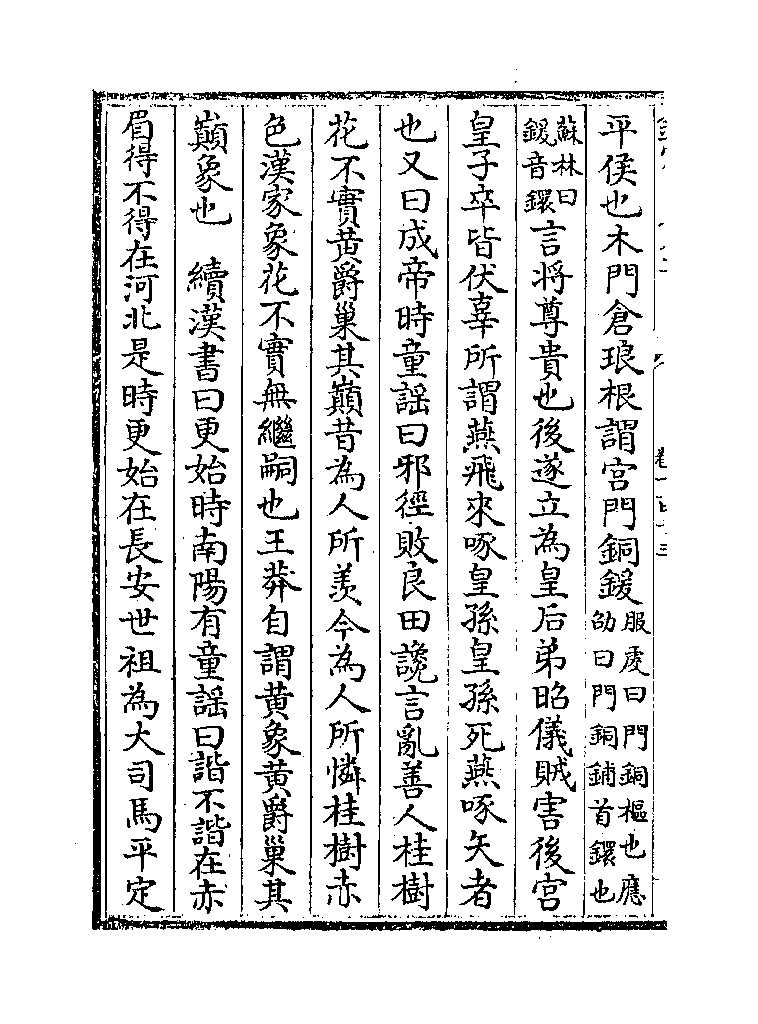 平侯也木門倉琅根謂宮門銅鍰服虔曰門銅樞也應劭曰門銅鋪首鐶也
蘇林曰鍰音鐶言將尊貴也後遂立為皇后弟昭儀賊害後宮
皇子卒皆伏辜所謂燕飛來啄皇孫皇孫死燕啄矢者
也又曰成帝時童謡曰邪徑敗良田讒言亂善人桂樹
花不實黄爵巢其巔昔為人所羡今為人所憐桂樹赤
色漢家象花不實無繼嗣也王莽自謂黄象黄爵巢其
巔象也　續漢書曰更始時南陽有童謡曰諧不諧在赤
眉得不得在河北是時更始在長安世祖為大司馬平定